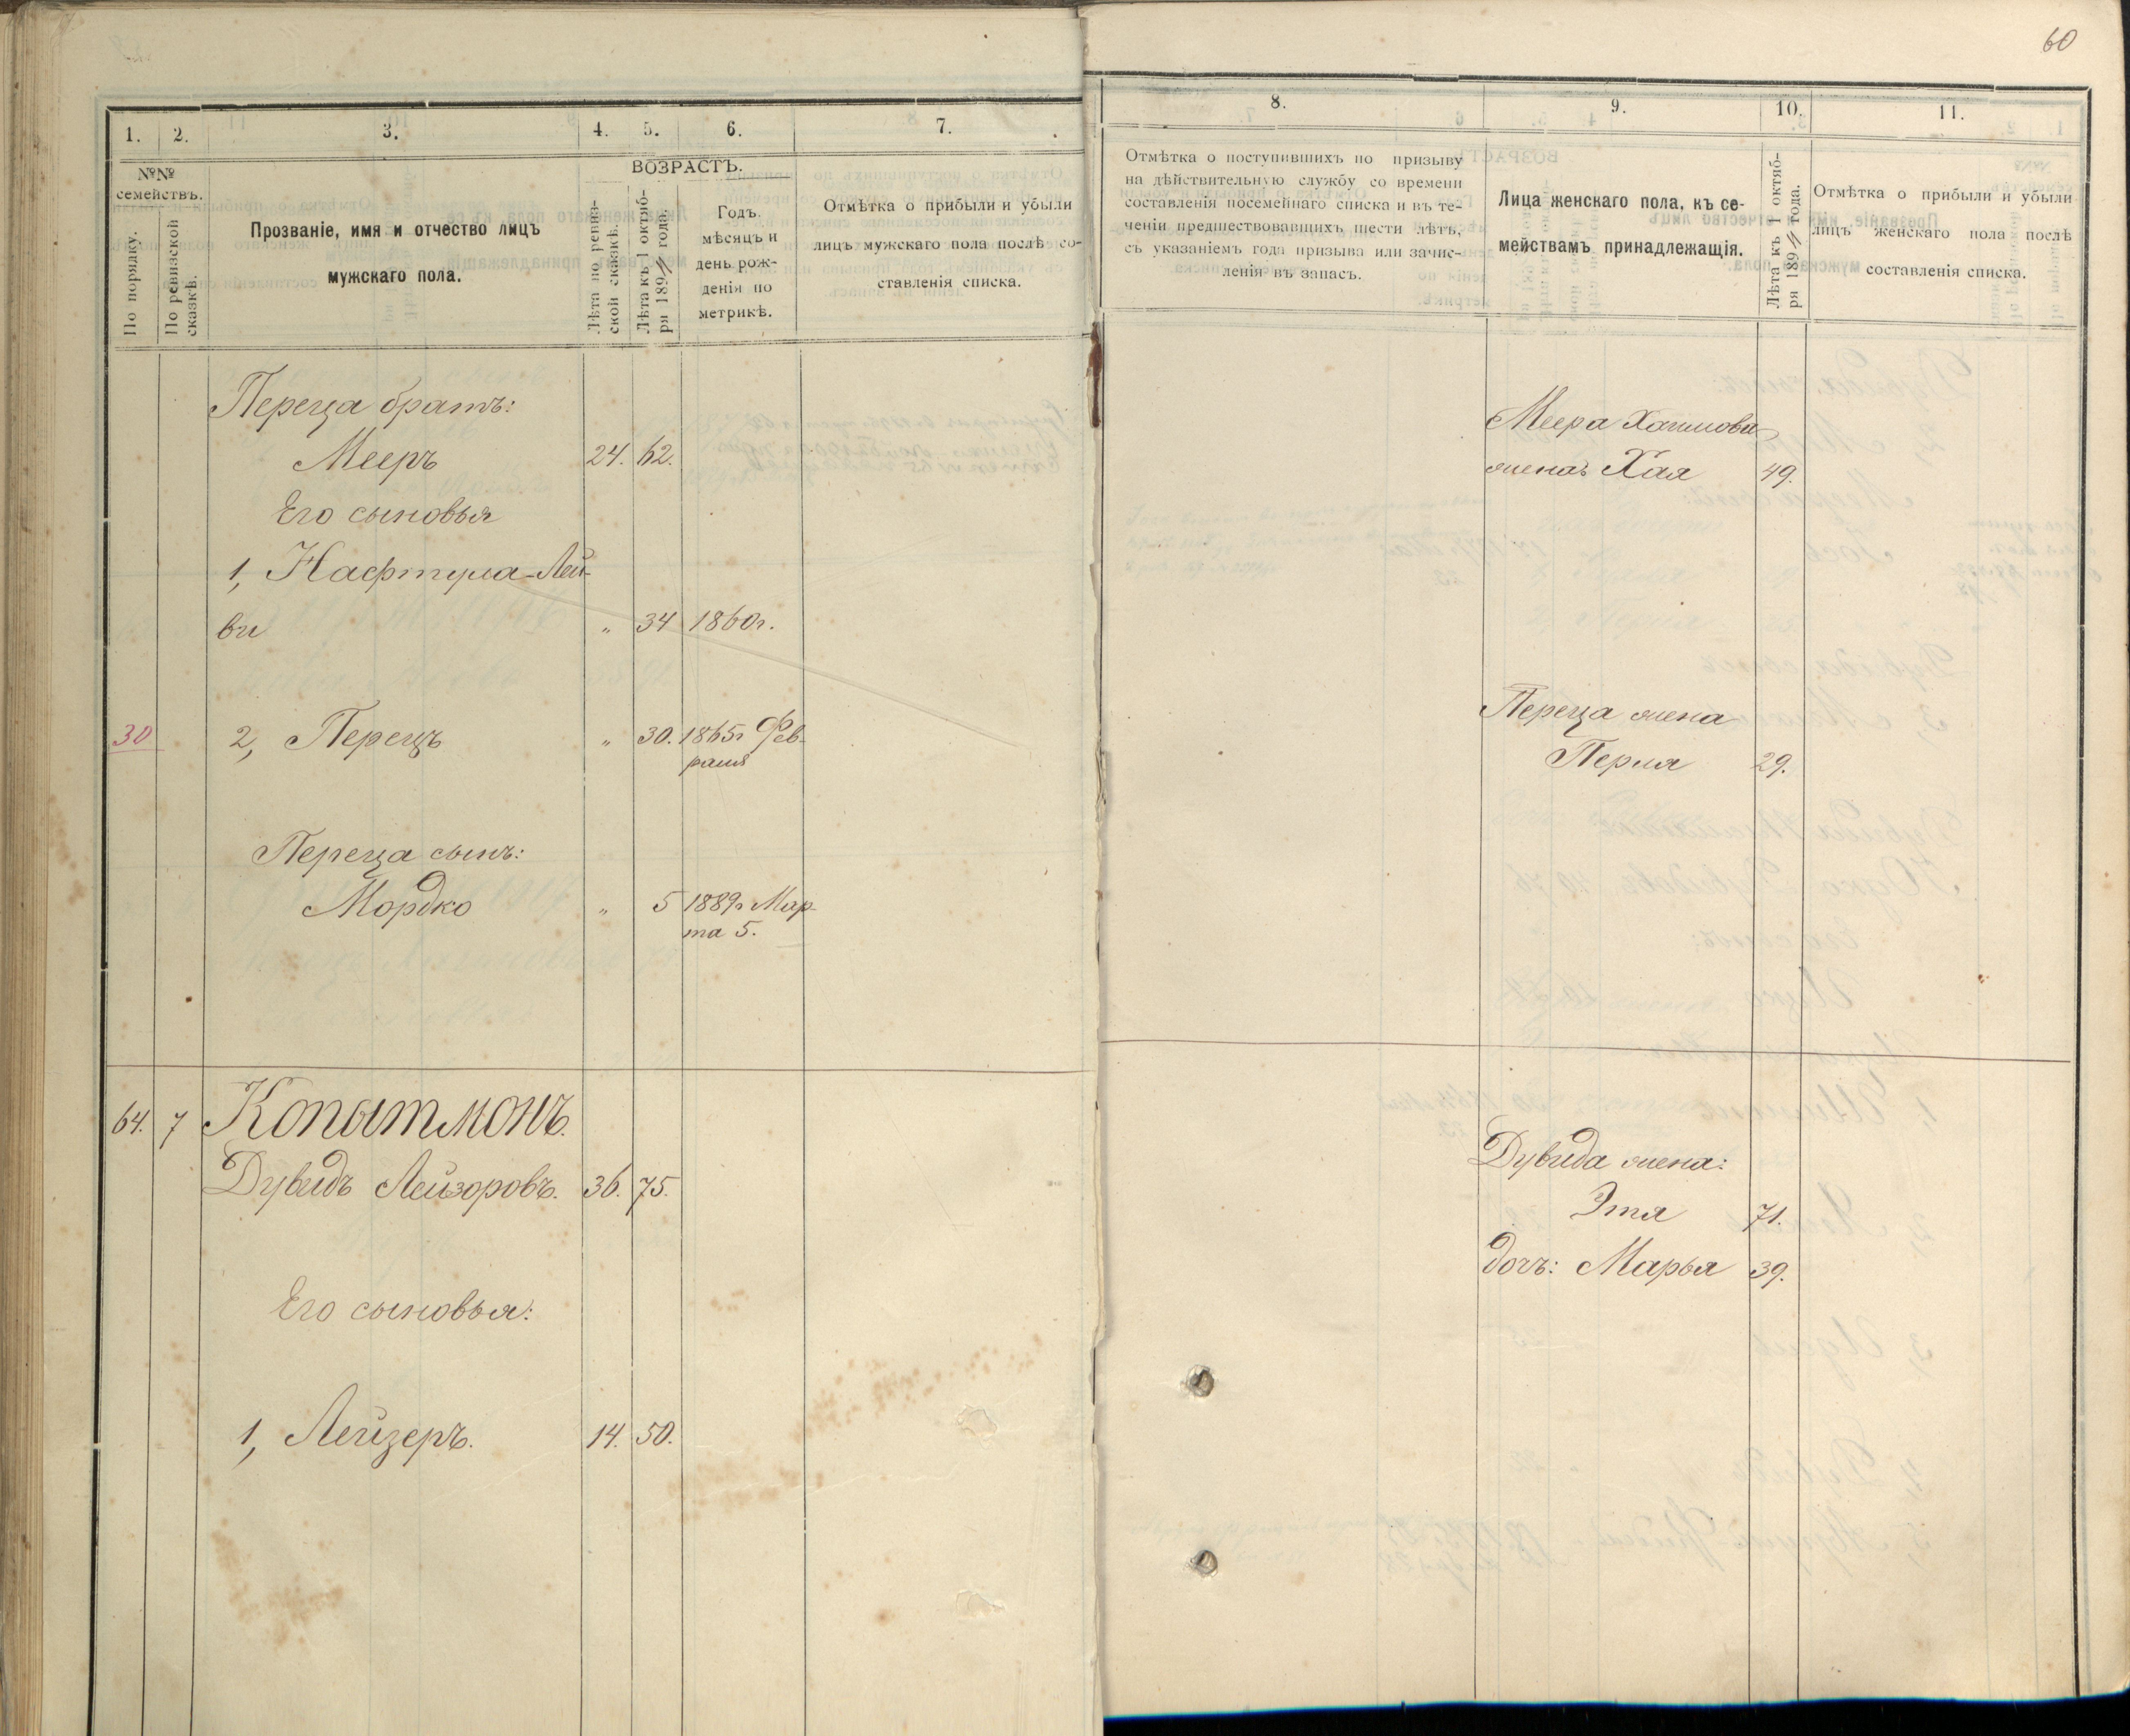 60
1. 2. 3. 4. 5. 6. 7.
№№ семействъ.
По порядку.
По ревизской сказкѣ.
Прозваніе, имя и отчество лицъ
мужскаго пола.
ВОЗРАСТЪ.
Лѣта по ревиз-
ской сказкѣ.
Лѣта къ 1 октяб-
ря 1894 года.
Годъ,
мѣсяцъ и
день рож-
денія по
метрикѣ.
Отмѣтка о прибыли и убыли
лицъ мужскаго пола послѣ со-
ставленія списка.
Переца братъ:
Мееръ 24. 62.
Его сыновья
1, Нафтула-Лей-
ви " 34 1860г.
30 2, Перецъ " 30. 1865г Фев-
раля
Переца сынъ:
Мордко " 5 1889г Мар-
та 5.
64. 7 Копытманъ.
Дувидъ Лейзоровъ. 36. 75.
Его сыновья:
1, Лейзеръ. 14. 50.
8. 9. 10. 11.
Отмѣтка о поступившихъ по призыву
на дѣйствительную службу со времени
составленія посемейнаго списка и въ те-
ченіи предшествовавшихъ шести лѣтъ,
съ указаніемъ года призыва или зачис-
ленія въ запасъ.
Лица женскаго пола, къ се-
мействамъ принадлежащія.
Лѣта къ 1 октяб-
ря 1894 года.
Отмѣтка о прибыли и убыли
лицъ женскаго пола послѣ
составленія списка.
Меера Хаимова
жена Хая 49.
Переца жена
Перля 29.
Дувида жена:
Этя 71.
дочь: Марья 39.